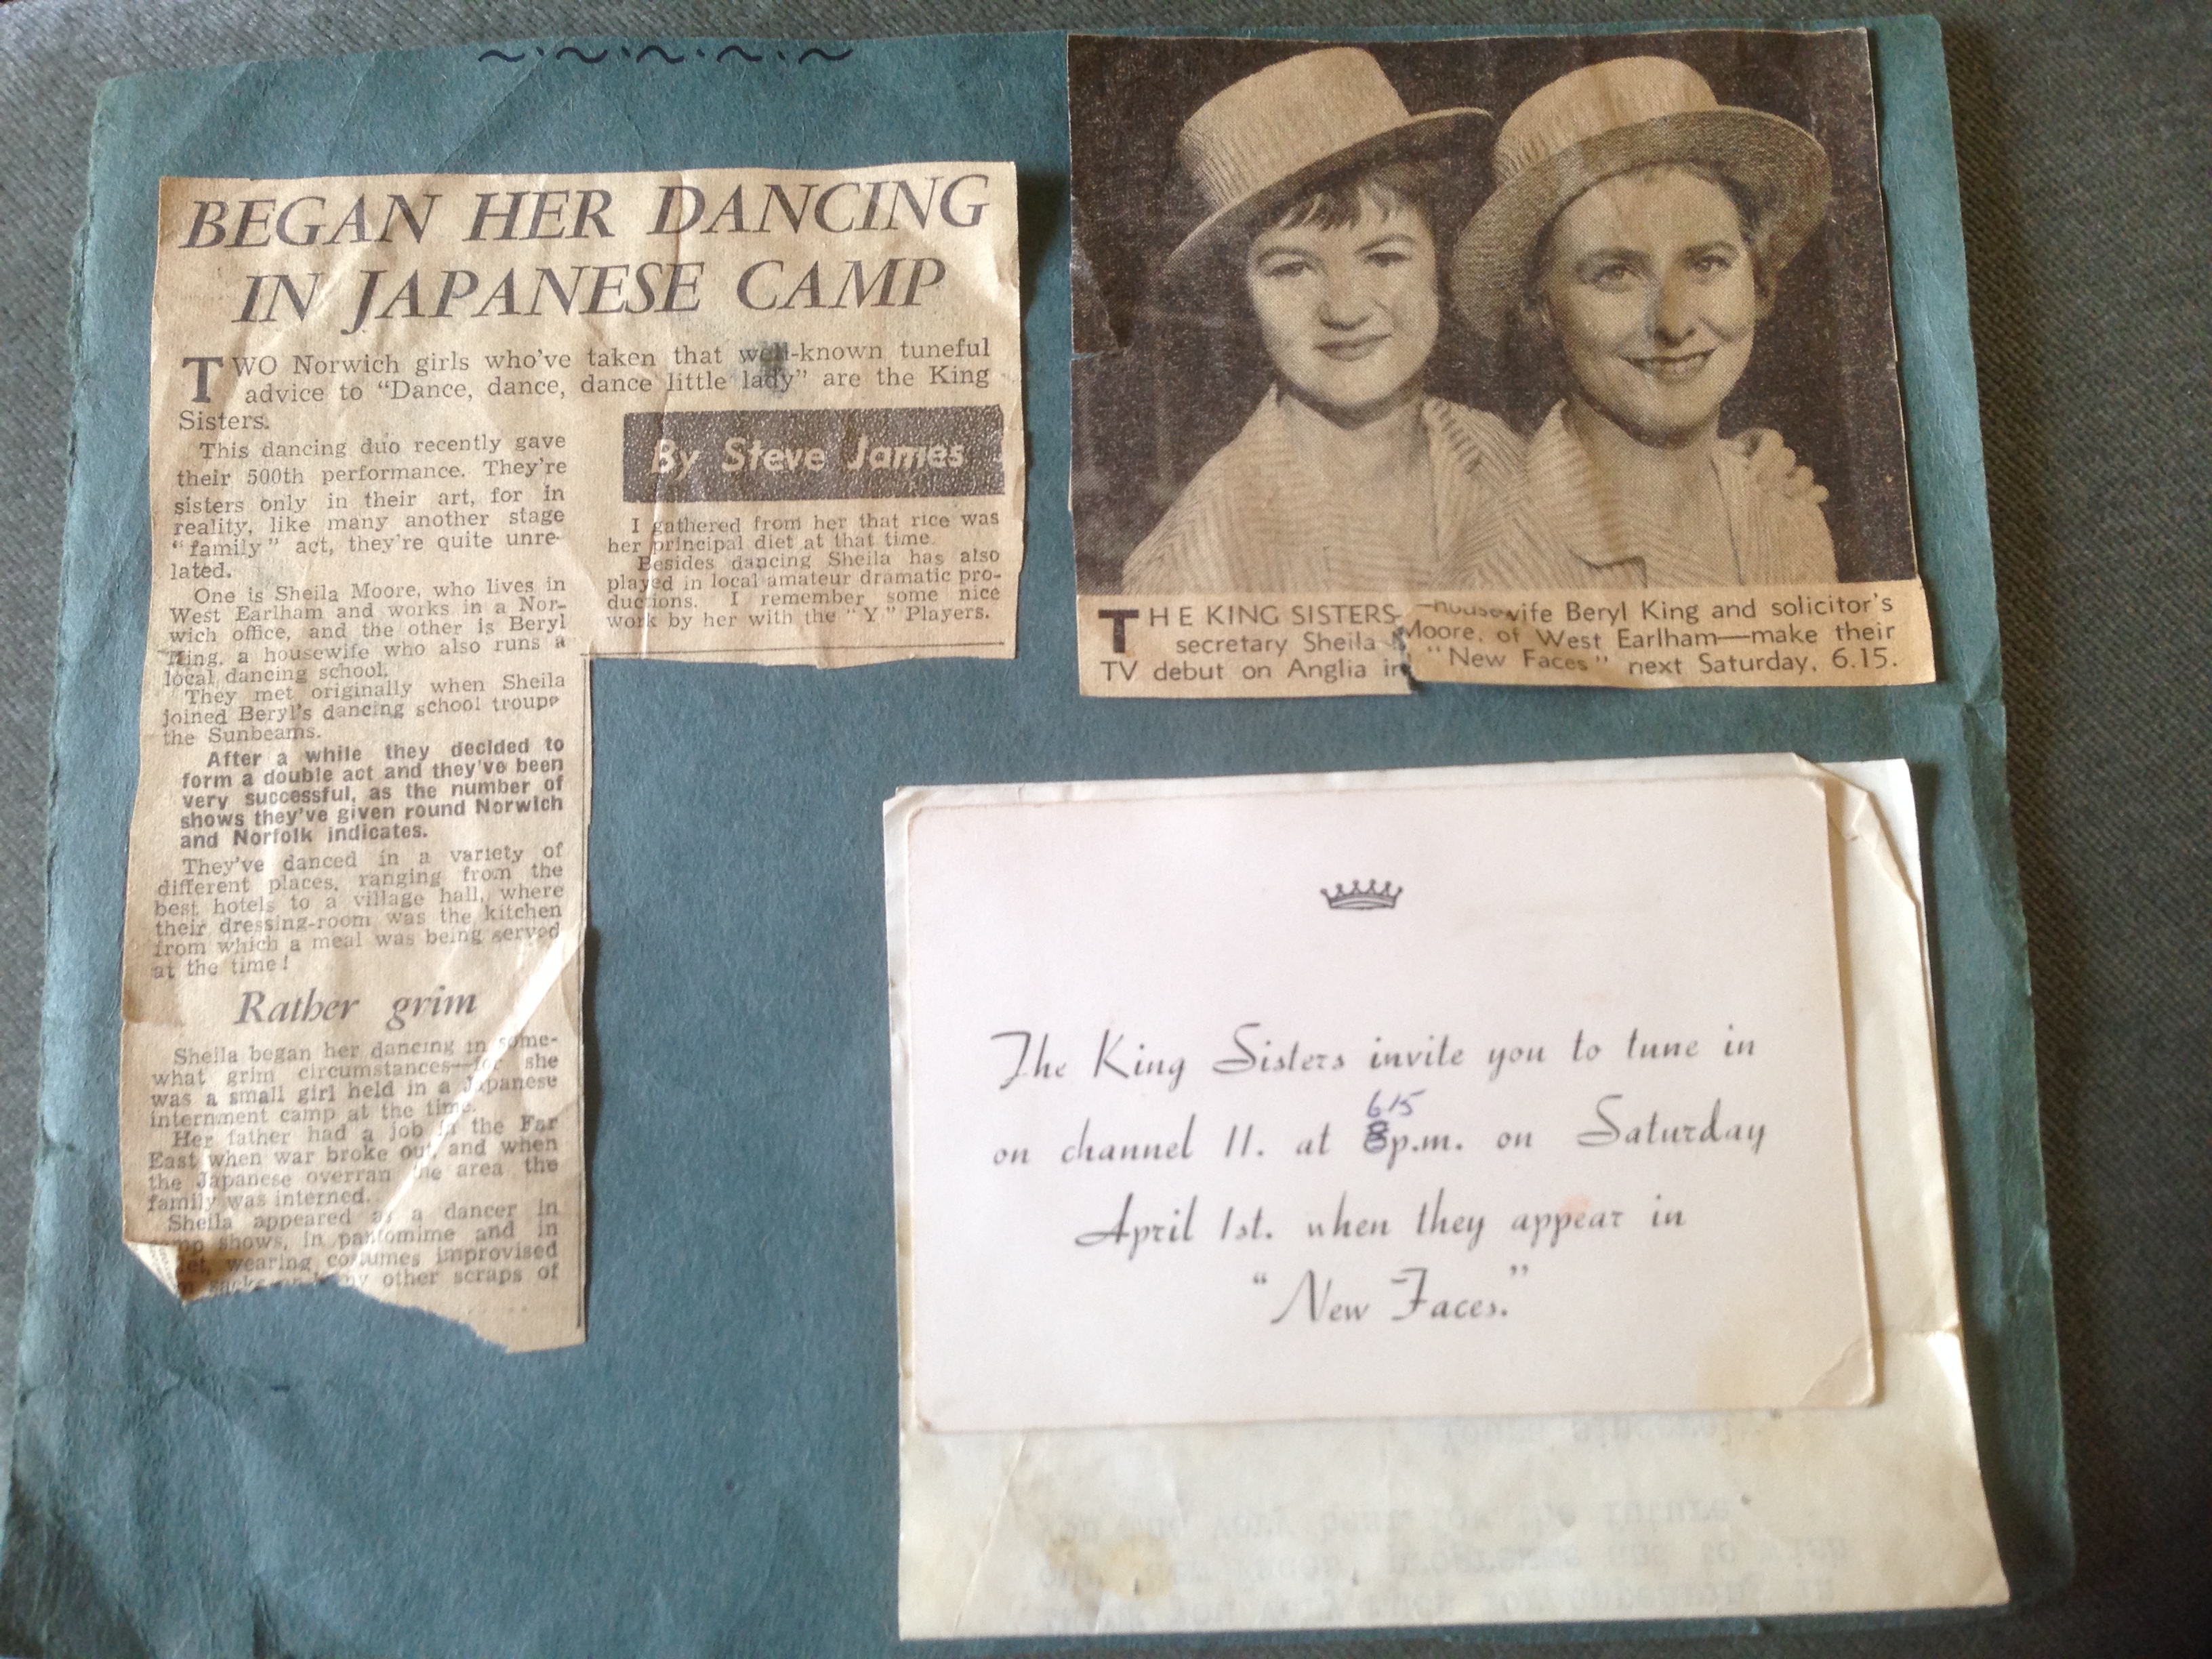 BEGAN HER DANCING
IN JAPANESE CAMP
TWO Norwich girls who've taken that well-known tuneful
advice to "Dance, dance, dance little lady" are the King
Sisters.
This dancing duo recently gave
their 500th performance. They're
sisters only in their art, for in
reality, like many another stage
"family" act, they're quite unre-
lated.
One is Sheila Moore, who lives in
West Earlham and works in a Nor-
wich office, and the other is Beryl
King, a housewife who also runs a
local dancing school.
They met originally when Sheila
joined Beryl's dancing school troupe
the Sunbeams.
After a while they decided to
form a double act and they've been
very successful, as the number of
shows they've given round Norwich
and Norfolk indicates.
They've danced in a variety of
different places, ranging from the
best hotels to a village hall, where
their dressing-room was the kitchen
from which a meal was being served
at the time!
Rather grim
Sheila began her dancing in some-
what grim circumstances—for she
was a small girl held in a Japanese
internment camp at the time.
Her father had a job in the Far
East when war broke out, and when
the Japanese overran the area the
family was interned.
Sheila appeared as a dancer in
shows, in pantomime and in
wearing costumes improvised
other scraps of
By Steve James
I gathered from her that rice was
her principal diet at that time.
Besides dancing Sheila has also
played in local amateur dramatic pro-
ductions. I remember some nice
work by her with the "Y" Players.
THE KING SISTERS—housewife Beryl King and solicitor's
secretary Sheila Moore, of West Earlham—make their
TV debut on Anglia in "New Faces" next Saturday, 6.15.
The King Sisters invite you to tune in
615
on channel 11. at 8p.m. on Saturday
April 1st. when they appear in
"New Faces."